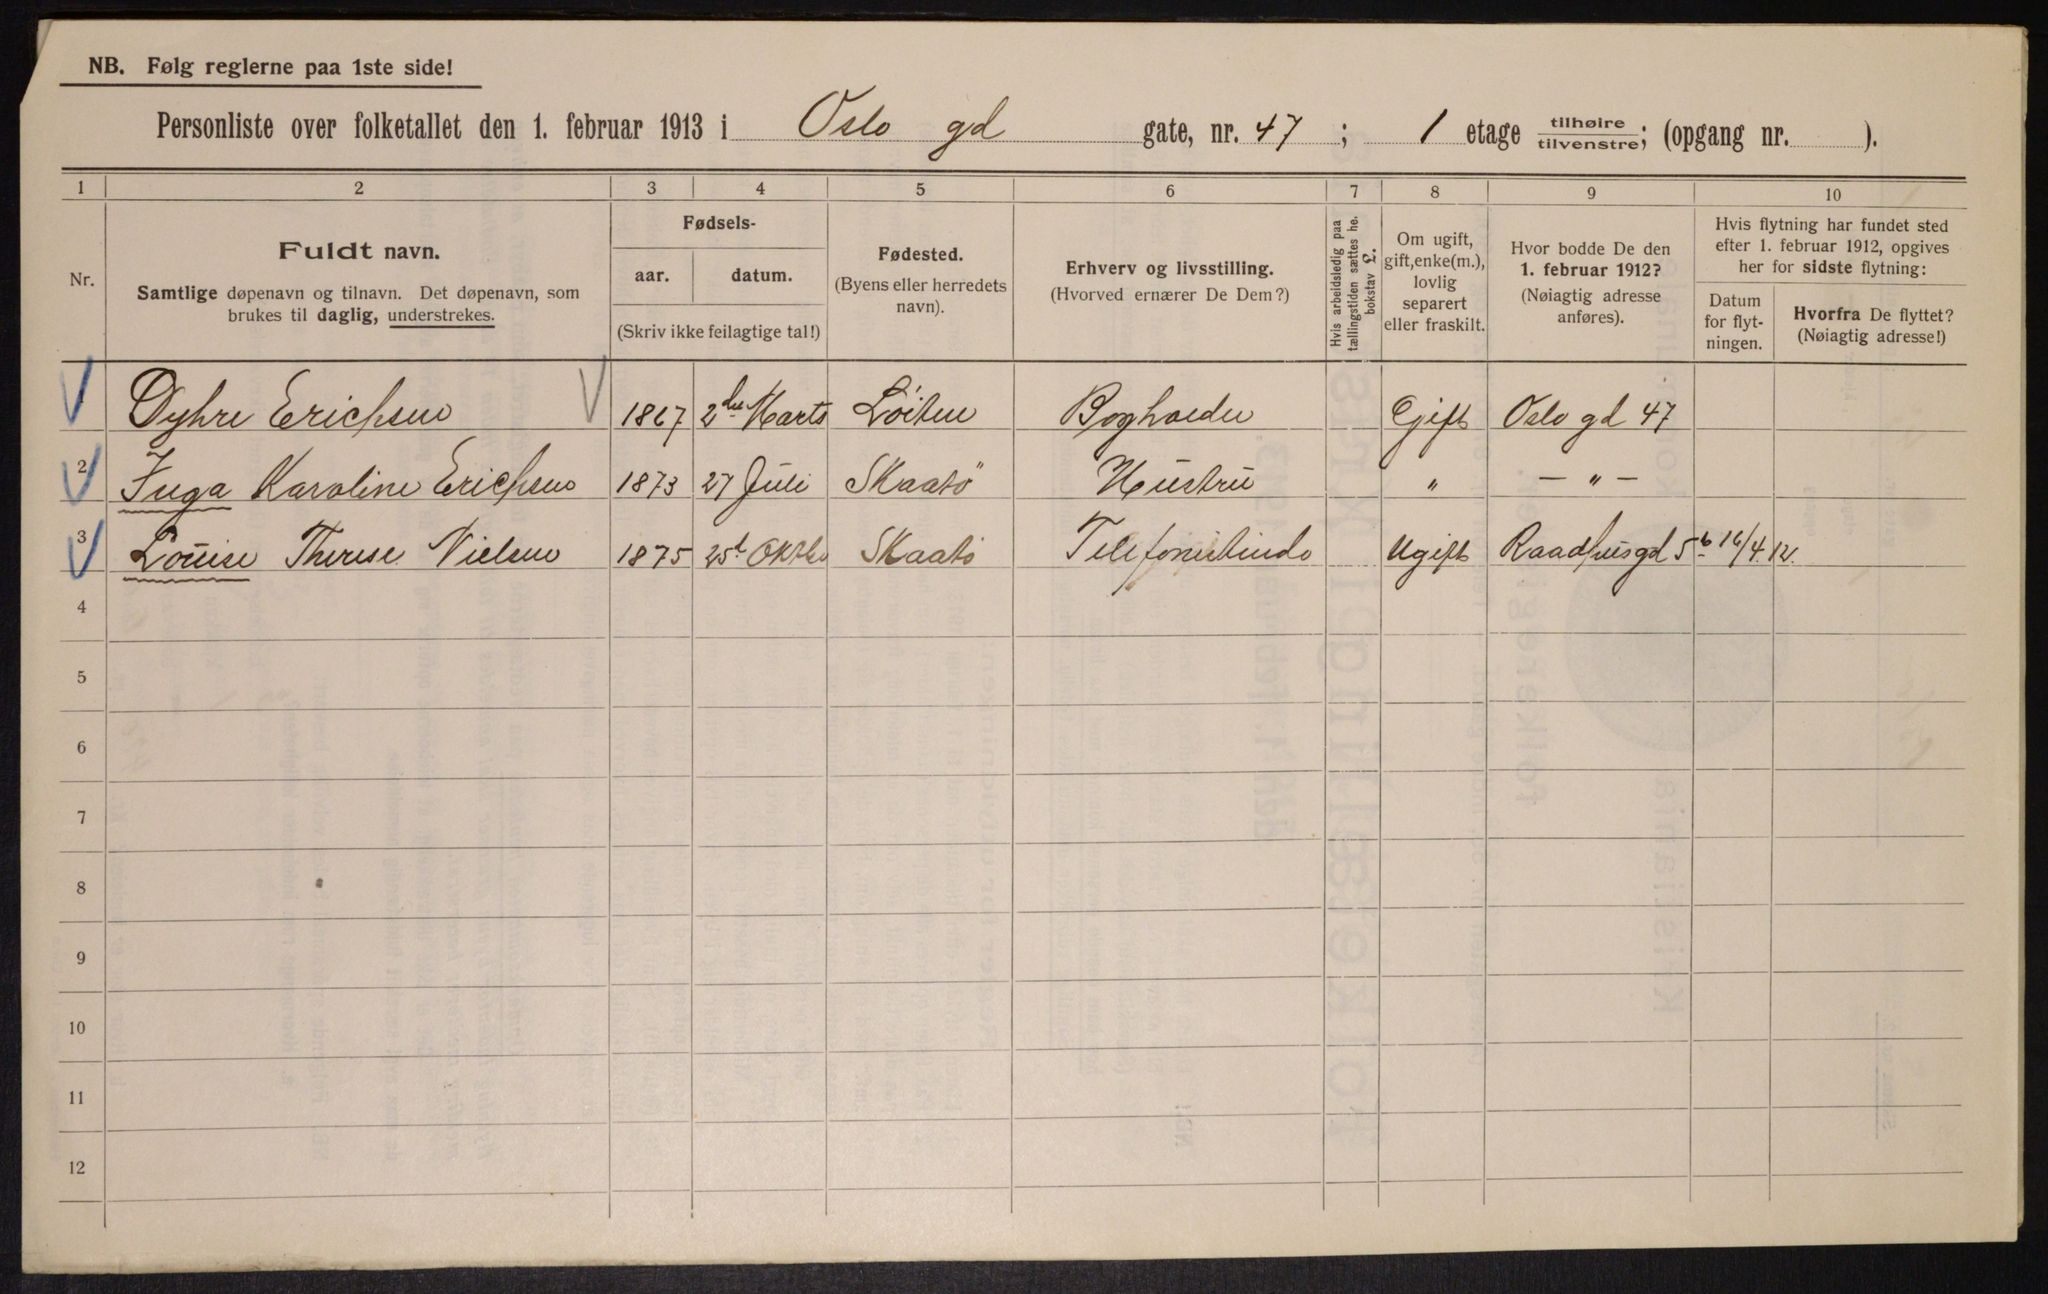 NB. Følg reglerne paa 1ste side!
Personliste over folketallet den 1. februar 1913 i Oslo gd gate, nr. 47 ; 1 etage tilhøire tilvenstre; (opgang nr. ).
1 2 3 4 5 6 7 8 9 10
Nr.
Fuldt navn.
Samtlige døpenavn og tilnavn. Det døpenavn, som
brukes til daglig, understrekes.
Fødsels-
aar. datum.
(Skriv ikke feilagtige tal!)
Fødested.
(Byens eller herredets
navn).
Erhverv og livsstilling.
(Hvorved ernærer De Dem?)
Hvis arbeidsledig paa
tællingstiden sættes her
bokstav L.
Om ugift,
gift, enke(m.),
lovlig
separert
eller fraskilt.
Hvor bodde De den
1. februar 1912?
(Nøiagtig adresse
anføres).
Hvis flytning har fundet sted
efter 1. februar 1912, opgives
her for sidste flytning:
Datum
for flyt-
ningen.
Hvorfra De flyttet?
(Nøiagtig adresse!)
Dyhre Erichsen 1867 2den Marts Løiten Bogholder Gift Oslo gd 47
2 Inga Karoline Erichsen 1873 27 Juli Skaatö Hustru " — " —
3 Louise Therese Nielsen 1875 25t Oktbr Skaatö Ugift Raadhusgd 5b 16/4.12.
4
5
6
7
8
9
10
11
12